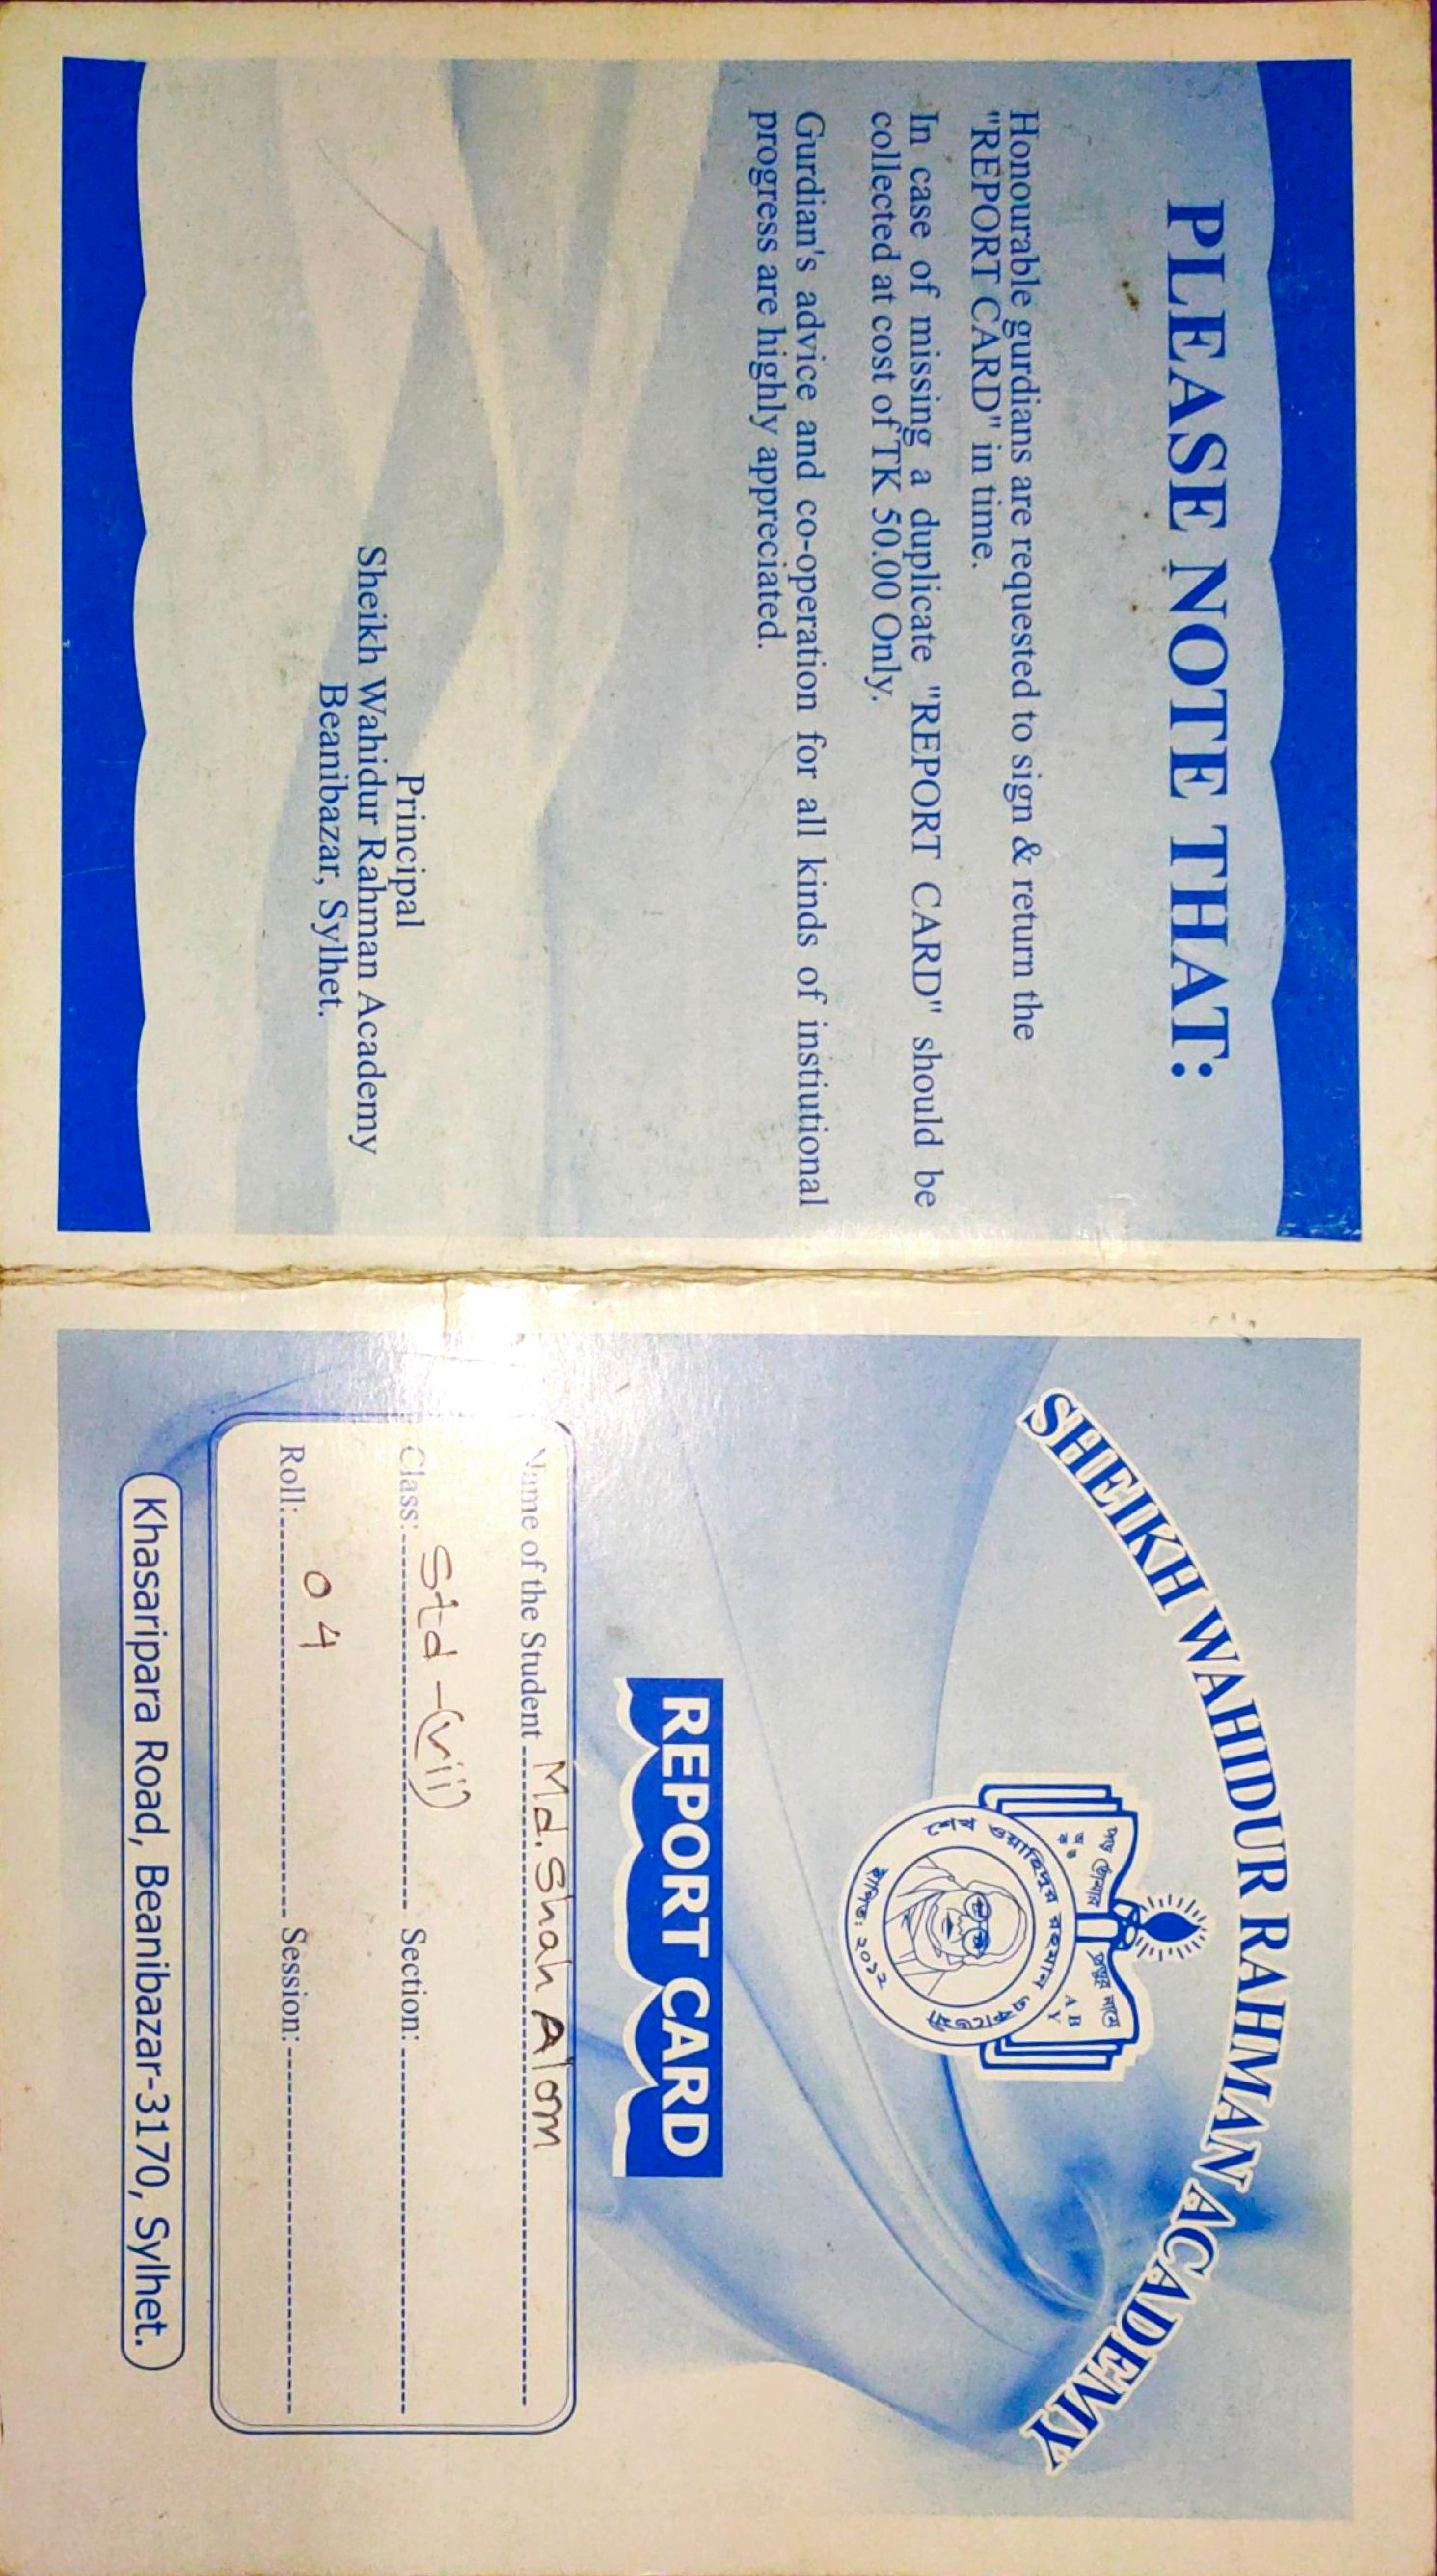 PLEASE NOTE THAT:
Honourable gurdians are requested to sign & return the
"REPORT CARD" in time.
In case of missing a duplicate "REPORT CARD" should be
collected at cost of TK 50.00 Only.
Gurdian's advice and co-operation for all kinds of instiutional
progress are highly appreciated.
Principal
Sheikh Wahidur Rahman Academy
Beanibazar, Sylhet.
SHEIKH WAHIDUR RAHMAN ACADEMY
পড় তোমার প্রভুর নামে
অ
ক ঙ
A B
Y
শেখ ওয়াহিদুর রহমান একাডেমী
স্থাপিত: ২০১২
REPORT CARD
Name of the Student Md. Shah Alom
Class: Std - (vii) Section:
Roll: 04 Session:
Khasaripara Road, Beanibazar-3170, Sylhet.